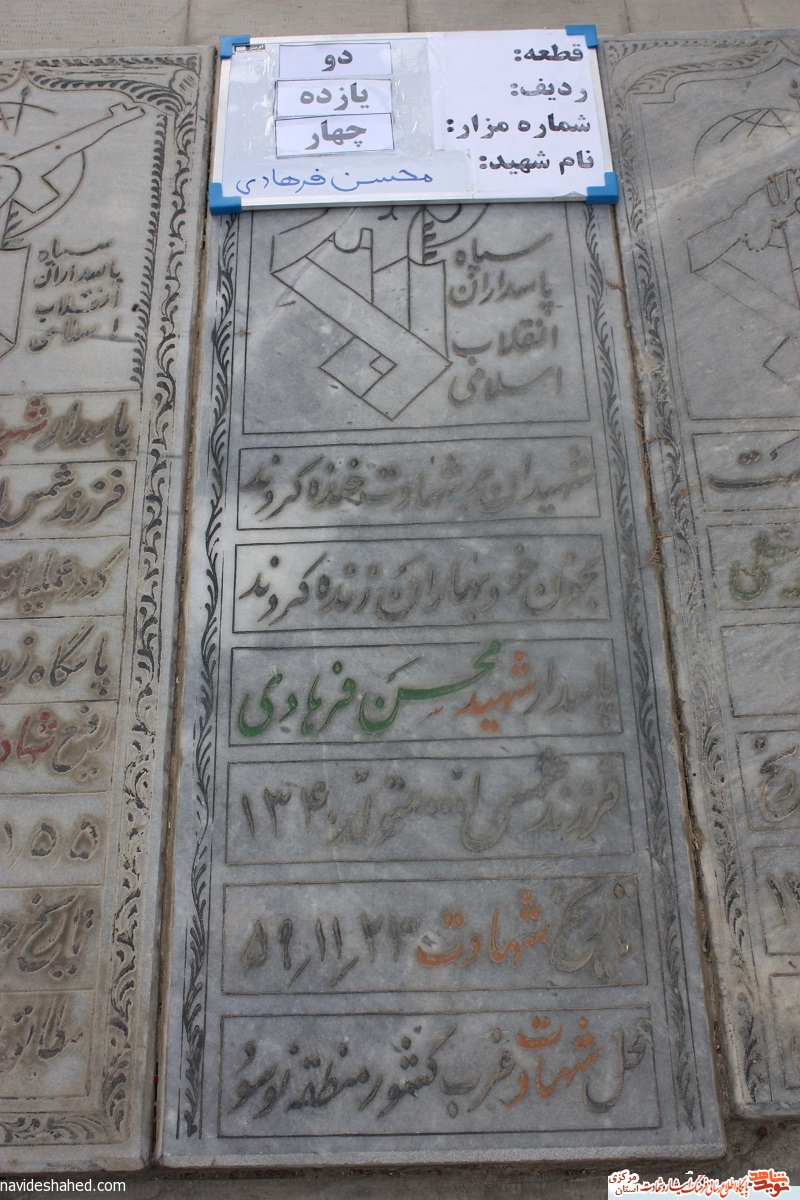 قطعه: دو
ردیف: یازده
شماره مزار: چهار
نام شهید: محسن فرهادی
سپاه
پاسداران
انقلاب
اسلامی
شهیدان بر شهادت خنده کردند
بخون خود بهاران زنده کردند
پاسدار شهید محسن فرهادی
فرزند شمس ا... متولد ۱۳۴۰
تاریخ شهادت ۵۹/۱۱/۲۳
محل شهادت غرب کشور منطقه نوسود
سپاه
پاسداران
انقلاب
اسلامی
پاسدار
فرزند شمس
پاسگاه
تاریخ
تاریخ
navideshahed.com
مرکزی
استان